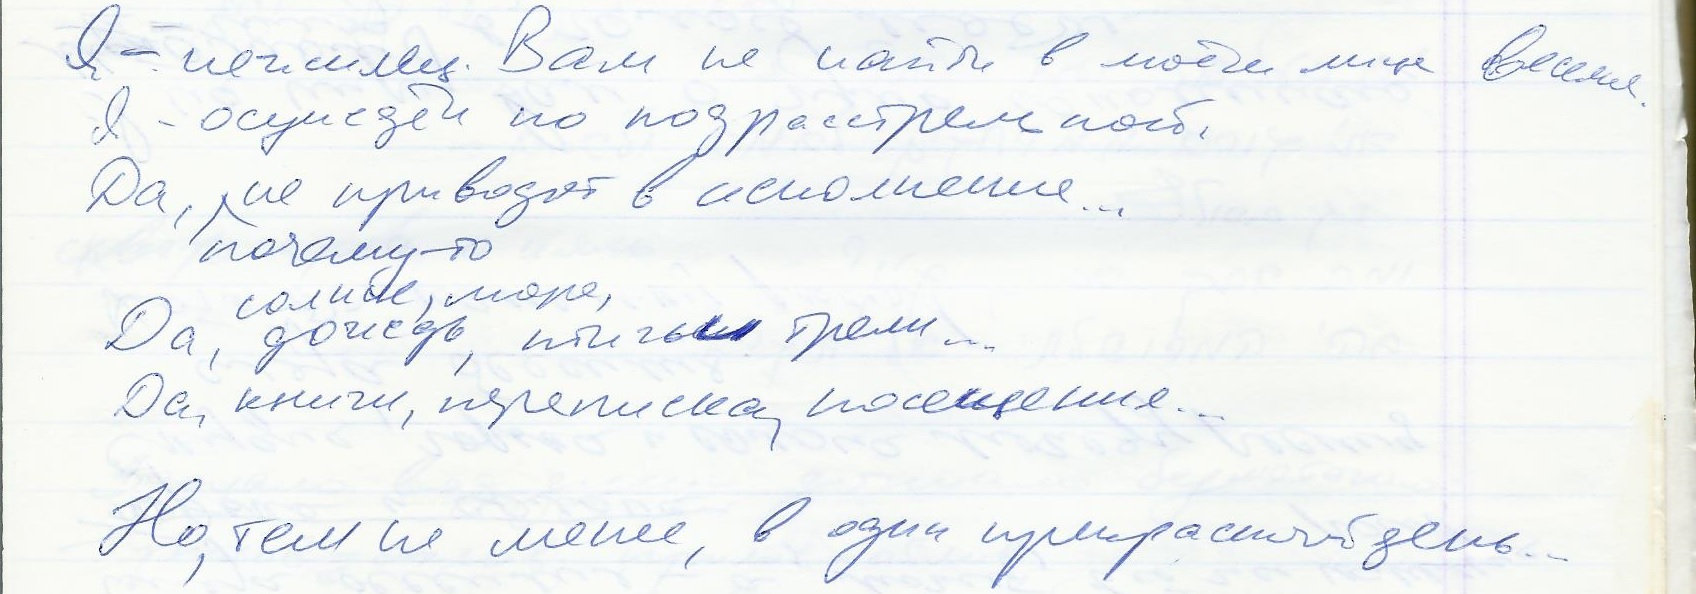 Я - нежилец. Вам не найти в моём лице веселья.
Я - осуждён по подрасстрельной.
Да, не приводят в исполнение...
почему-то
солнце, море,
Да, дождь, птичьи трели...
Да, книги, переписка, посещения...
Но, тем не менее, в один прекрасный день...